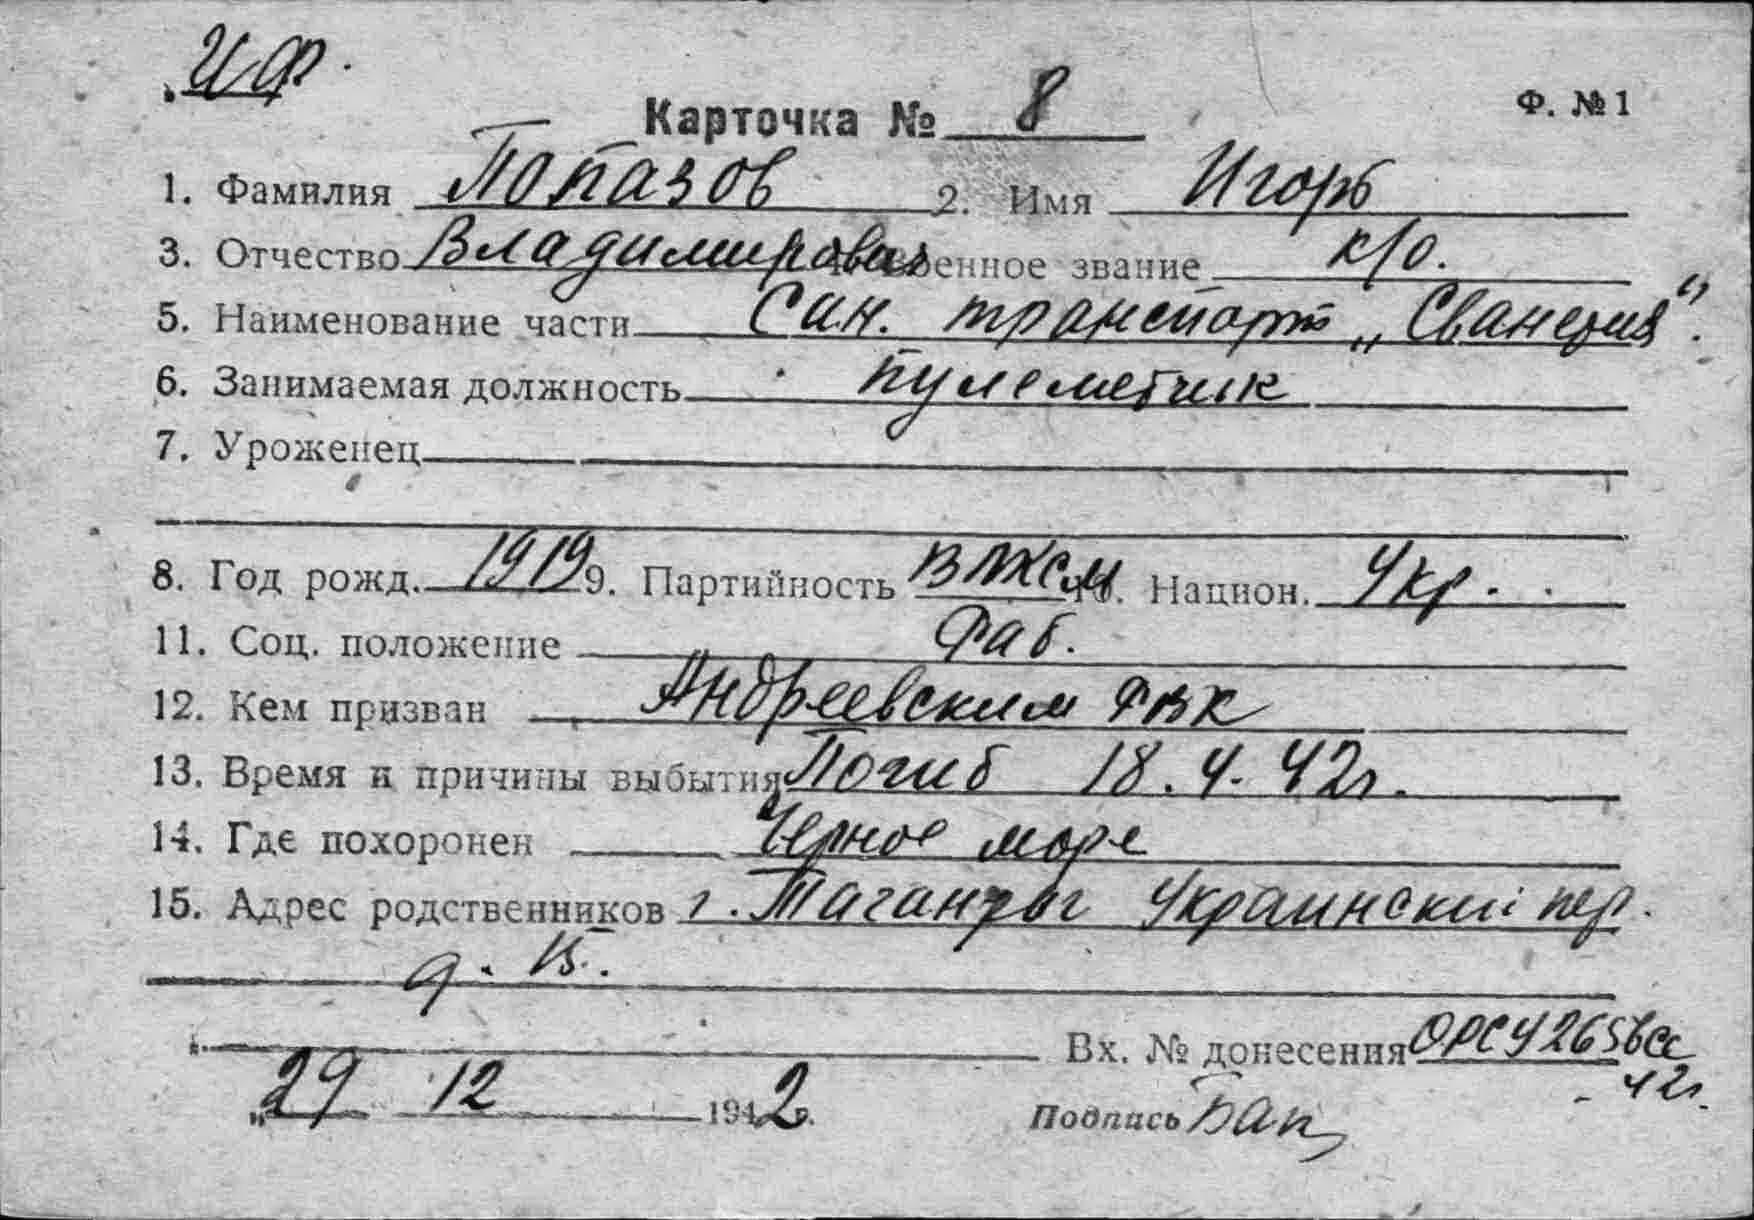 ИФ.
Карточка № 8 Ф. № 1
1. Фамилия Попазов 2. Имя Игорь
3. Отчество Владимирович военное звание к/о.
5. Наименование части Сан. транспорт „Сванетия".
6. Занимаемая должность пулеметчик
7. Уроженец
8. Год рожд. 1919 9. Партийность ВЛКСМ 10. Национ. Укр.
11. Соц. положение Раб.
12. Кем призван Андреевским РВК
13. Время и причины выбытия Погиб 18.4.42г.
14. Где похоронен Черное море
15. Адрес родственников г. Таганрог Украинский пер.
д. 15.
Вх. № донесения ОРСУ 265
42г.
„29 12 1942г.
Подпись